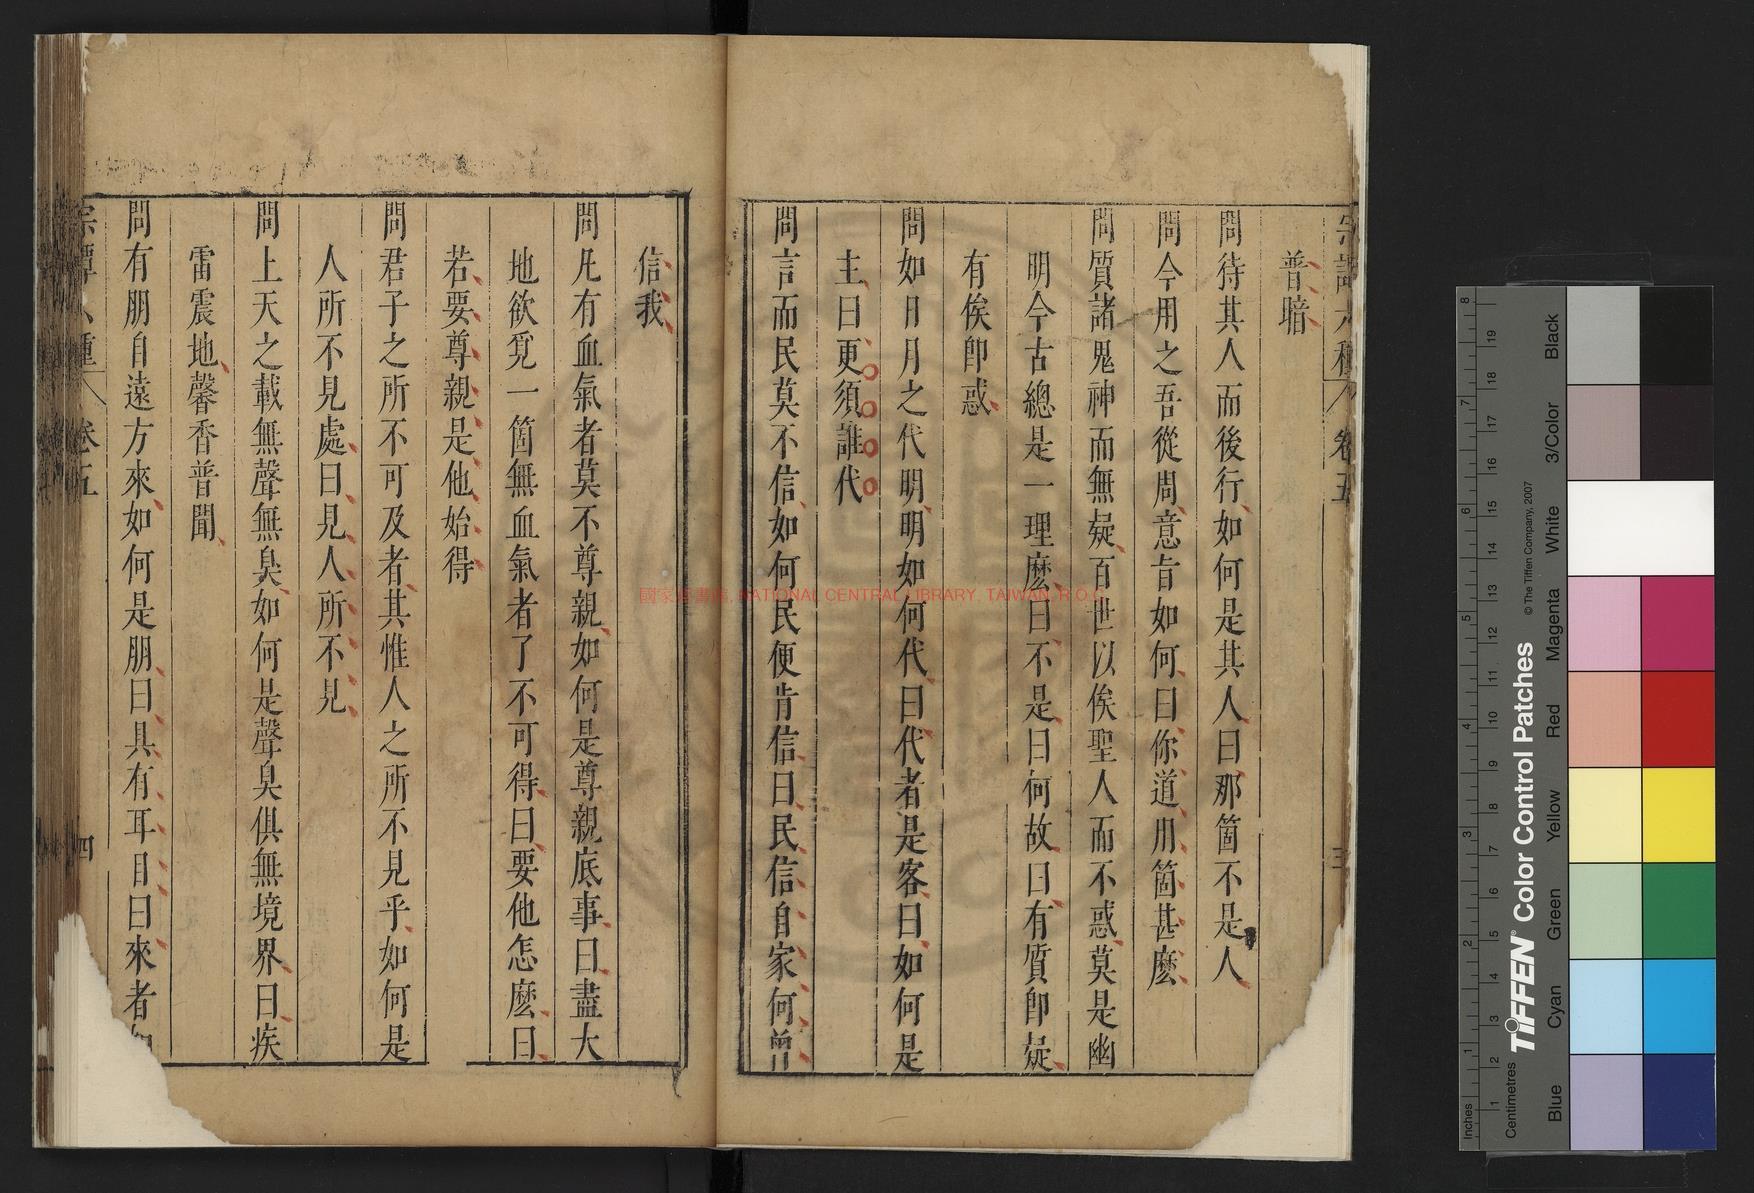 普暗
問待其人而後行如何是其人曰那箇不是人
問今用之吾從周意旨如何曰你道用箇甚麼
問質諸鬼神而無疑百世以俟聖人而不惑莫是幽
明今古總是一理麼曰不是曰何故曰有質卽疑
有俟卽惑
問如日月之代明明如何代曰代者是客曰如何是
主曰更須誰代
問言而民莫不信如何民便肯信曰民信自家何曾
信我
問凡有血氣者莫不尊親如何是尊親底事曰盡大
地欲覓一箇無血氣者了不可得曰要他怎麼曰
若要尊親是他始得
問君子之所不可及者其惟人之所不見乎如何是
人所不見處曰見人所不見
問上天之載無聲無臭如何是聲臭俱無境界曰疾
雷震地馨香普聞
問有朋自遠方來如何是朋曰具有耳目曰來者
卷五
三
卷五
四
國家圖書館, NATIONAL CENTRAL LIBRARY, TAIWAN, R.O.C.
TIFFEN® Color Control Patches
© The Tiffen Company, 2007
Inches
Centimetres
Blue
Cyan
Green
Yellow
Red
Magenta
White
3/Color
Black